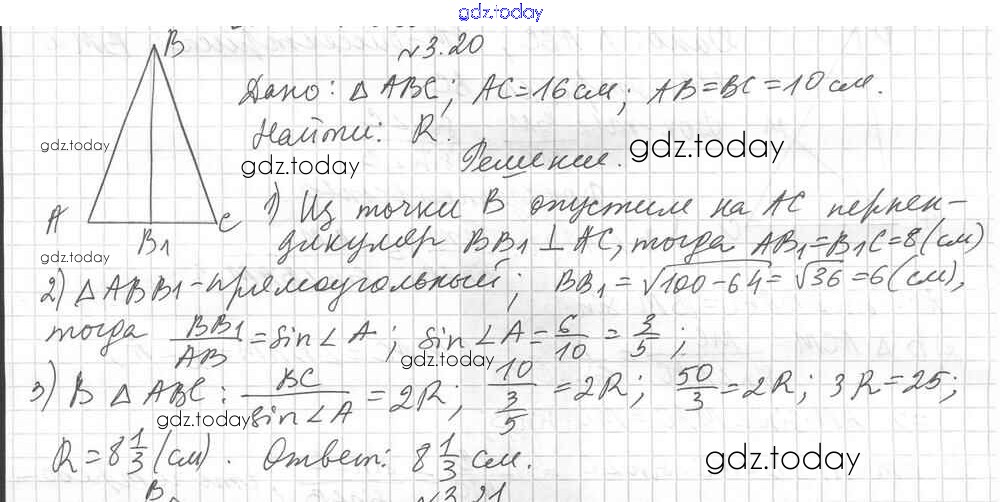 gdz.today
№3.20
B
Дано: △ABC; AC=16см; AB=BC=10см.
Найти: R.
gdz.today
gdz.today
gdz.today
Решение.
A
C
B₁
1) Из точки B опустим на AC перпен-
дикуляр BB₁⊥AC, тогда AB₁=B₁C=8(см)
gdz.today
2) △ABB₁-прямоугольный; BB₁=√100-64=√36=6(см),
тогда BB₁/AB=sin∠A; sin∠A=6/10=3/5;
gdz.today
3) В △ABC: BC/sin∠A=2R; 10/(3/5)=2R; 50/3=2R; 3R=25;
gdz.today
R=8 1/3(см). Ответ: 8 1/3 см.
gdz.today
B
№3.21